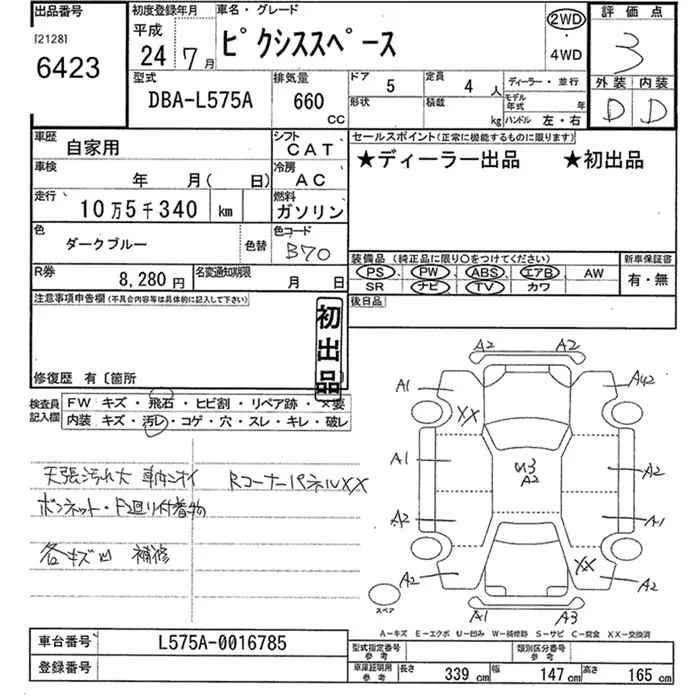 出品番号
[2128]
6423
初度登録年月
平成
24年 7月
車名・グレード
ピクシススペース
2WD
・
4WD
評価点
3
外装 内装
D D
型式
DBA-L575A
排気量
660
CC
ドア
5
定員
4 人
形状
積載
kg
ディーラー・並行
モデル年式 年
ハンドル 左・右
車歴
自家用
シフト
CAT
セールスポイント(正常に機能するものに限ります)
★ディーラー出品 ★初出品
車検
年 月( 日)
冷房
AC
走行
10万5千340 km
燃料
ガソリン
色
ダークブルー
色替
色コード
B70
装備品(純正品に限り○をつけてください)
PS、PW、ABS、エアB、AW
SR ナビ TV カワ
新車保証書
有・無
R券
8,280円
名変通知期限
月 日
後日品
注意事項申告欄(不具合内容等は具体的に記入して下さい)
初出品
修復歴 有〔箇所
検査員記入欄
FW キズ・飛石・ヒビ割・リペア跡・×要
内装 キズ・汚レ・コゲ・穴・スレ・キレ・破レ
天張汚れ大 車内ニオイ Rコーナーパネル XX
ボンネット・F廻り付着物
各キズ凹 補修
A2 A2
A1 A42
XX
A1 U3 A2
A2
A2 A1
XX
A2 A2
A1 A3
スペア
A-キズ E-エクボ U-凹み W-補修跡 S-サビ C-腐食 XX-交換済
車台番号
L575A-0016785
登録番号
型式指定番号
参考
類別区分番号
参考
車庫証明用
参考
長さ 339 cm 幅 147 cm 高さ 165 cm